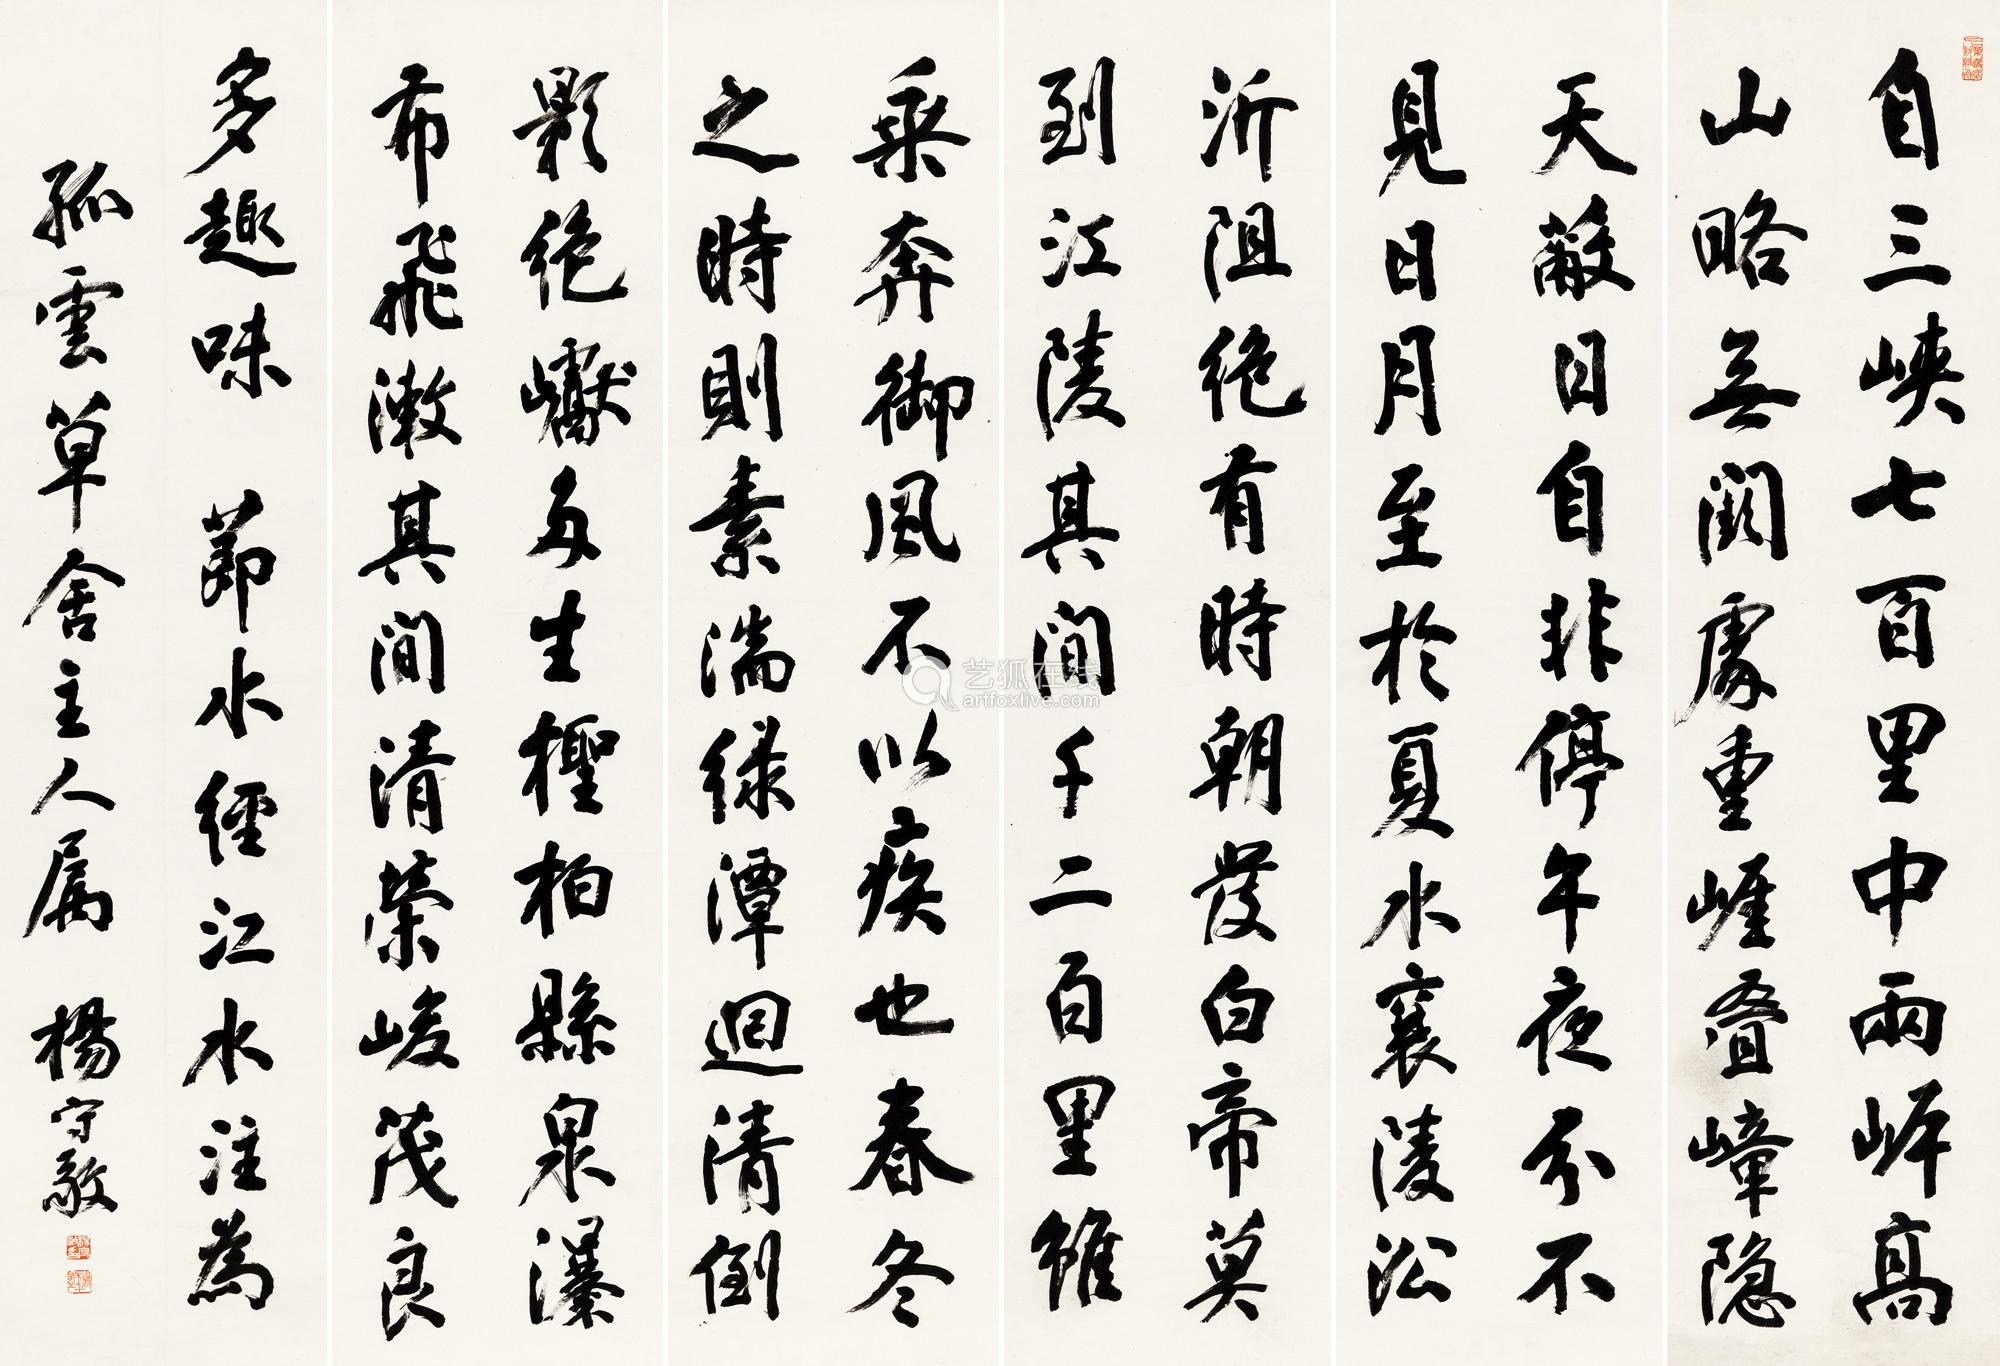 自三峽七百里中兩岸高
山略無闕處重崖叠嶂隱
天蔽日自非停午夜分不
見日月至於夏水襄陵沿
泝阻絕有時朝發白帝莫
到江陵其間千二百里雖
乘奔御風不以疾也春冬
之時則素湍綠潭迴清倒
影絕巘多生檉柏縣泉瀑
布飛漱其間清榮峻茂良
多趣味 節水經江水注為
孤雲草舍主人属 楊守敬
艺狐在线
artfoxlive.com